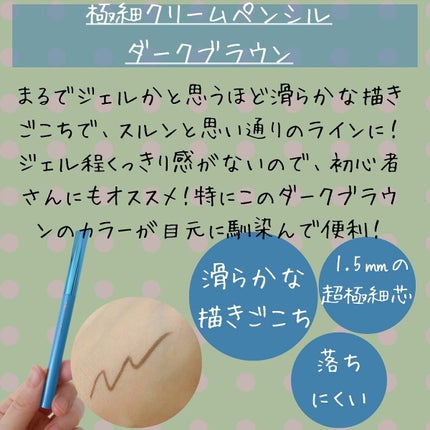 極細クリームペンシル
ダークブラウン
まるでジェルかと思うほど滑らかな描き
ごこちで、スルンと思い通りのラインに!
ジェル程くっきり感がないので、初心者
さんにもオススメ!特にこのダークブラウ
ンのカラーが目元に馴染んで便利!
滑らかな
描きごこち
1.5mmの
超極細芯
落ち
にくい